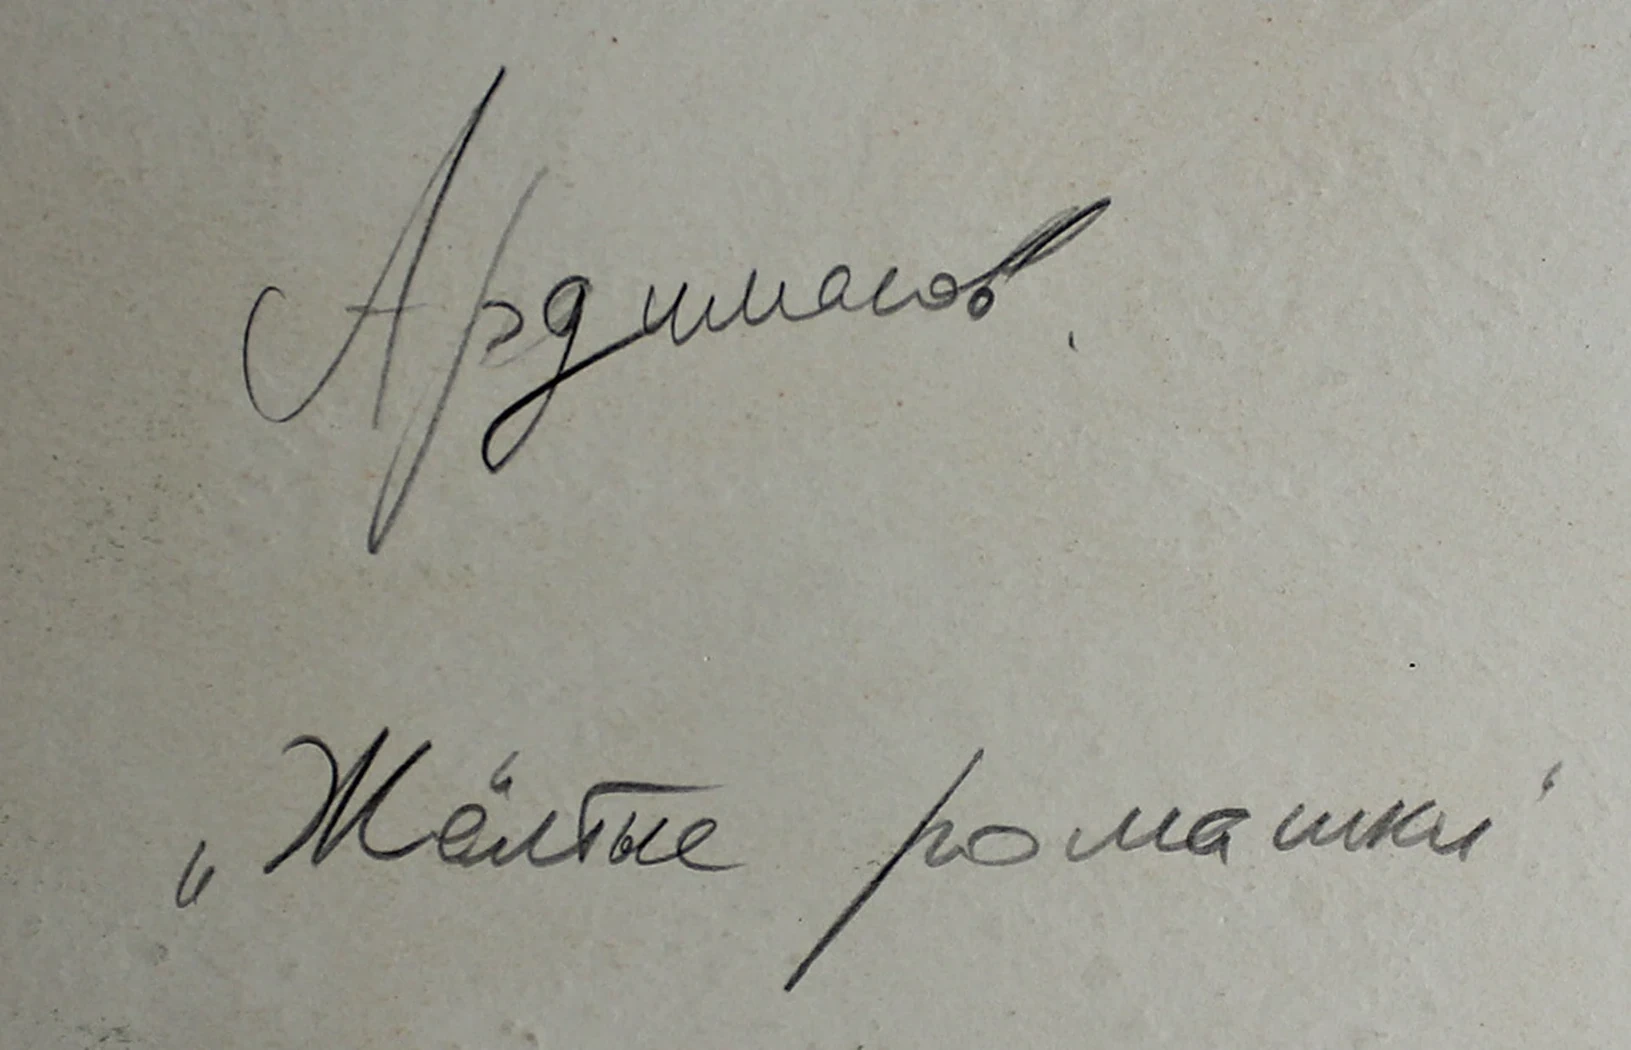 Ардимасов
„Жёлтые ромашки"